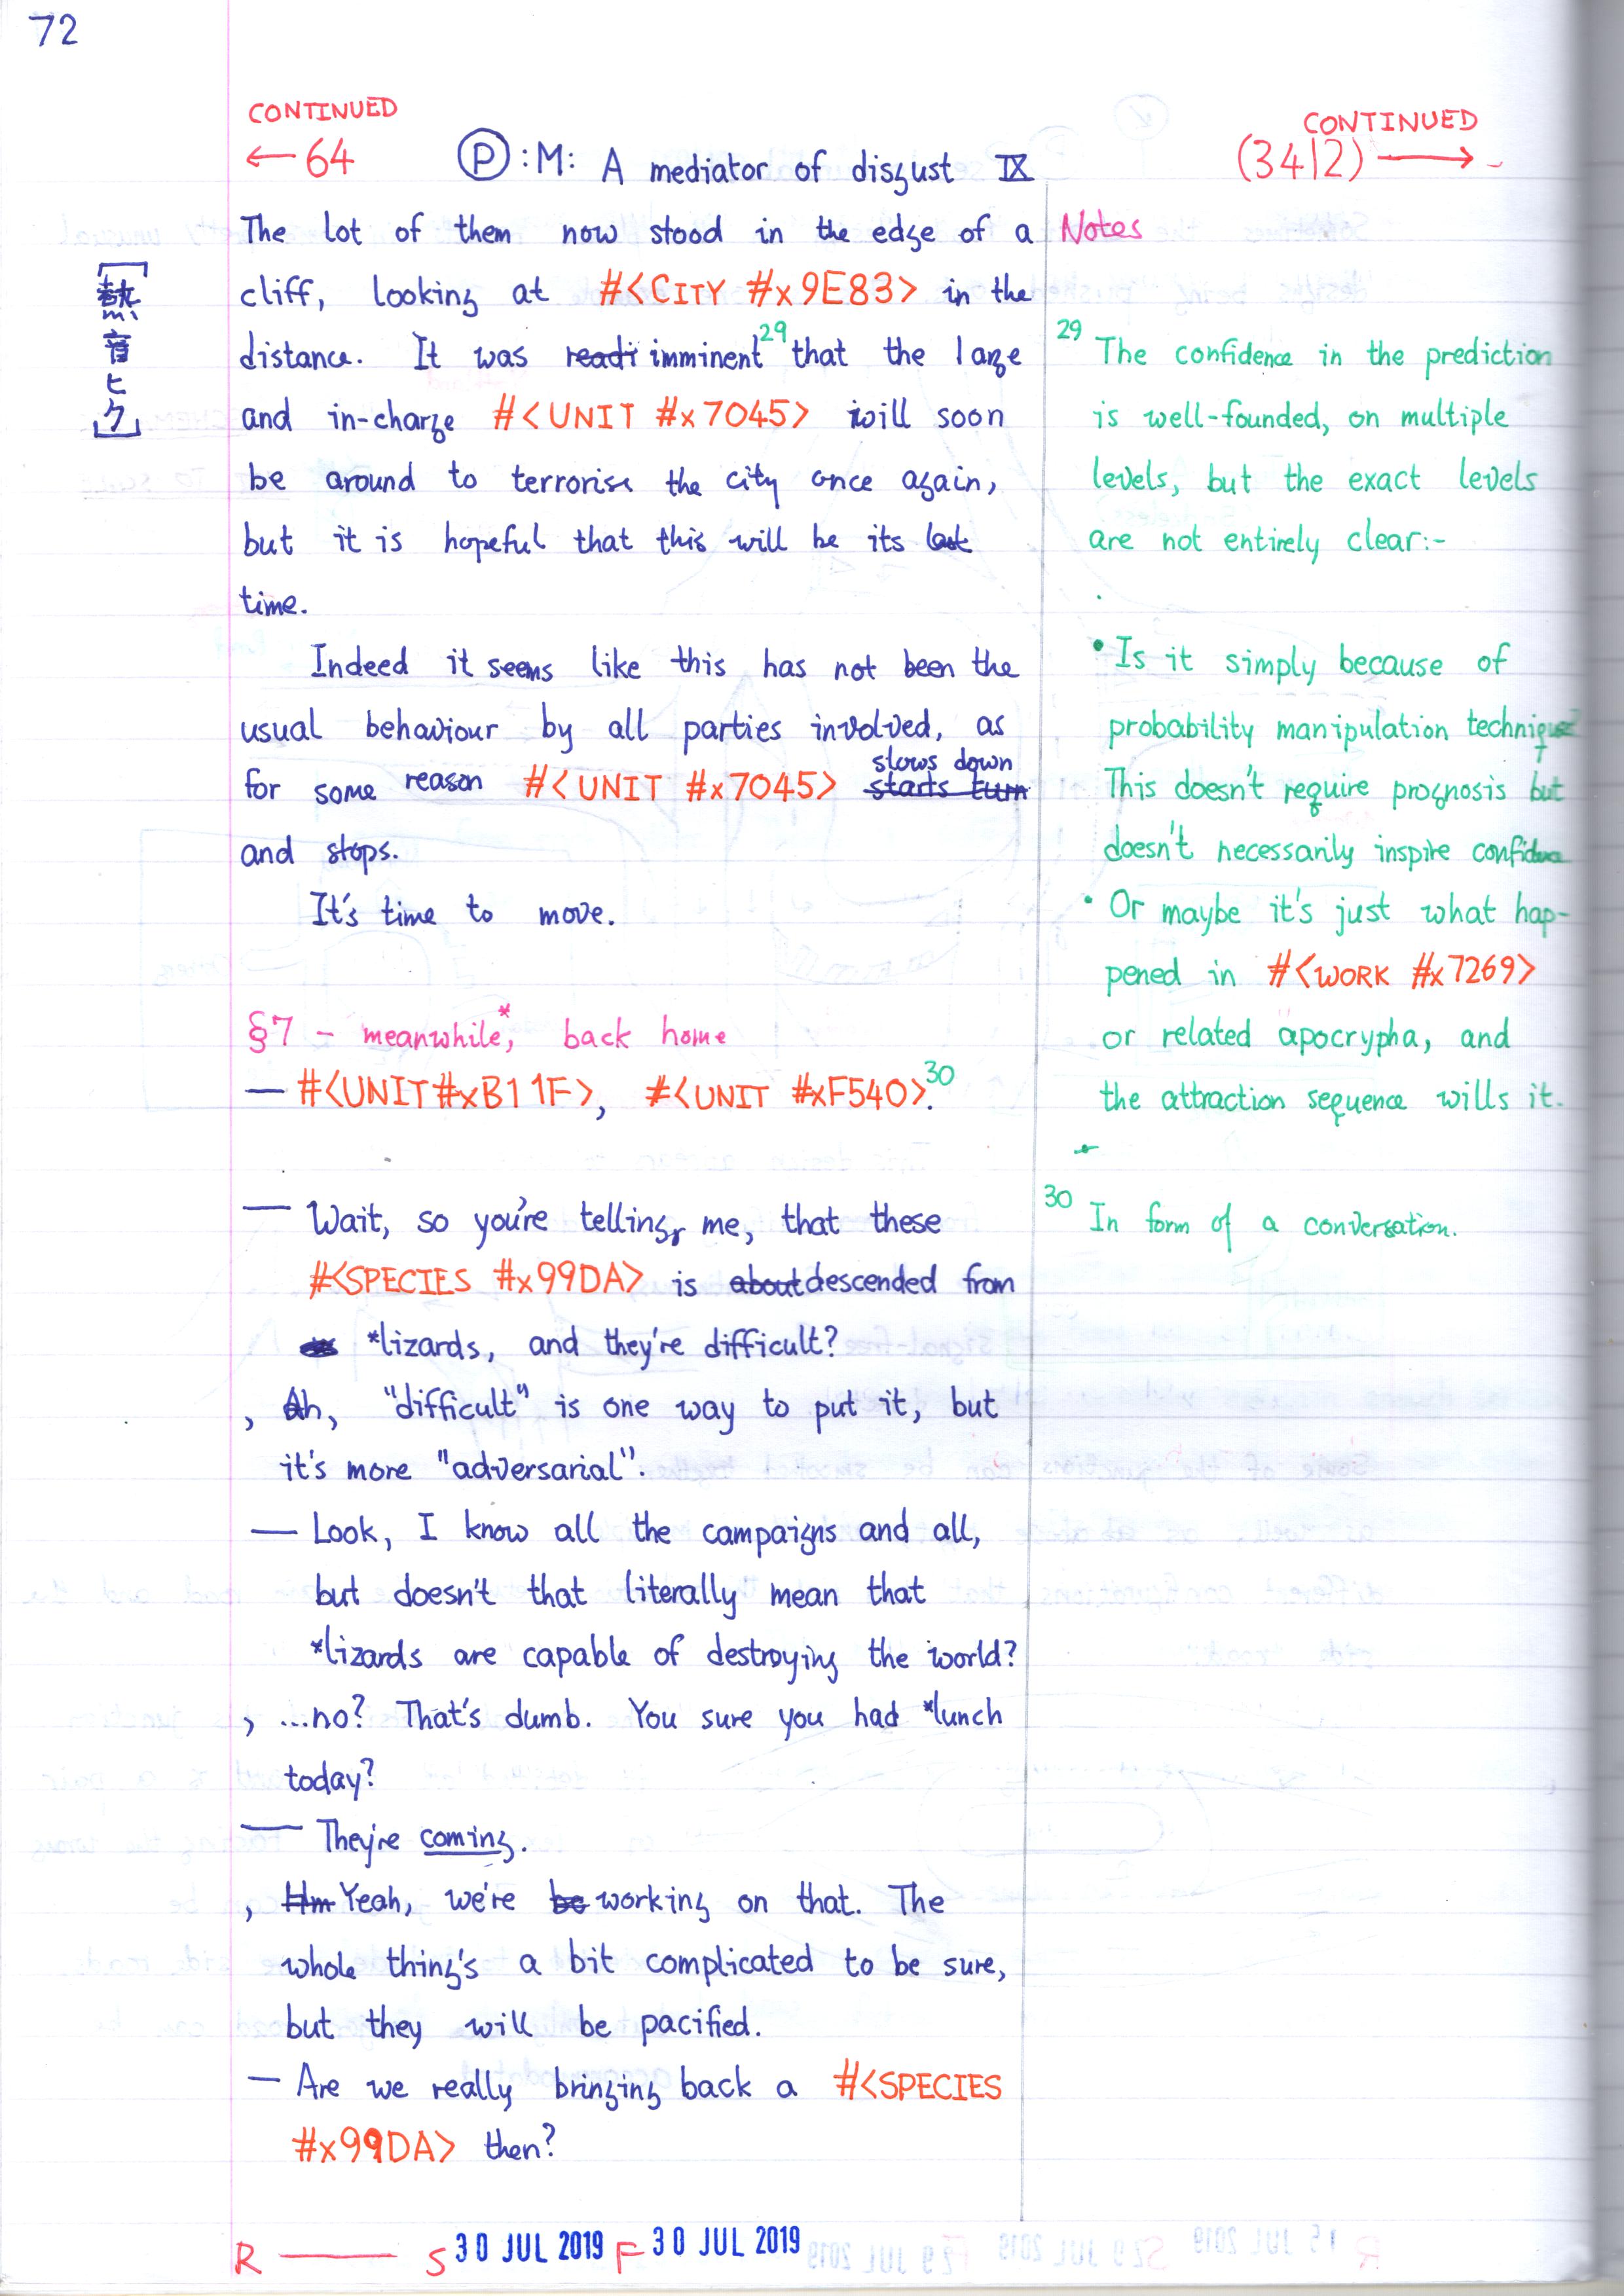 72
CONTINUED
←64
Ⓟ:M: A mediator of disgust IX
CONTINUED
(3412)→
The lot of them now stood in the edge of a
cliff, looking at #<CITY #x9E83> in the
distance. It was readi imminent²⁹ that the large
and in-charge #<UNIT #x7045> will soon
be around to terrorise the city once again,
but it is hopeful that this will be its last
time.
Indeed it seems like this has not been the
usual behaviour by all parties involved, as
slows down
for some reason #<UNIT #x7045> starts turn
and stops.
It's time to move.
§7 – meanwhile*, back home
— #<UNIT#xB11F>, #<UNIT #xF540>.³⁰
— Wait, so you're telling me, that these
#<SPECIES #x99DA> is about descended from
*lizards, and they're difficult?
, Ah, "difficult" is one way to put it, but
it's more "adversarial".
— Look, I know all the campaigns and all,
but doesn't that literally mean that
*lizards are capable of destroying the world?
, ...no? That's dumb. You sure you had *lunch
today?
— They're coming.
, Hm Yeah, we're be working on that. The
whole thing's a bit complicated to be sure,
but they will be pacified.
— Are we really bringing back a #<SPECIES
#x99DA> then?
Notes
29 The confidence in the prediction
is well-founded, on multiple
levels, but the exact levels
are not entirely clear:-
• Is it simply because of
probability manipulation technique?
This doesn't require prognosis but
doesn't necessarily inspire confidence
• Or maybe it's just what hap-
pened in #<WORK #x7269>
or related apocrypha, and
the attraction sequence wills it.
30 In form of a conversation.
R — S 30 JUL 2019 F 30 JUL 2019